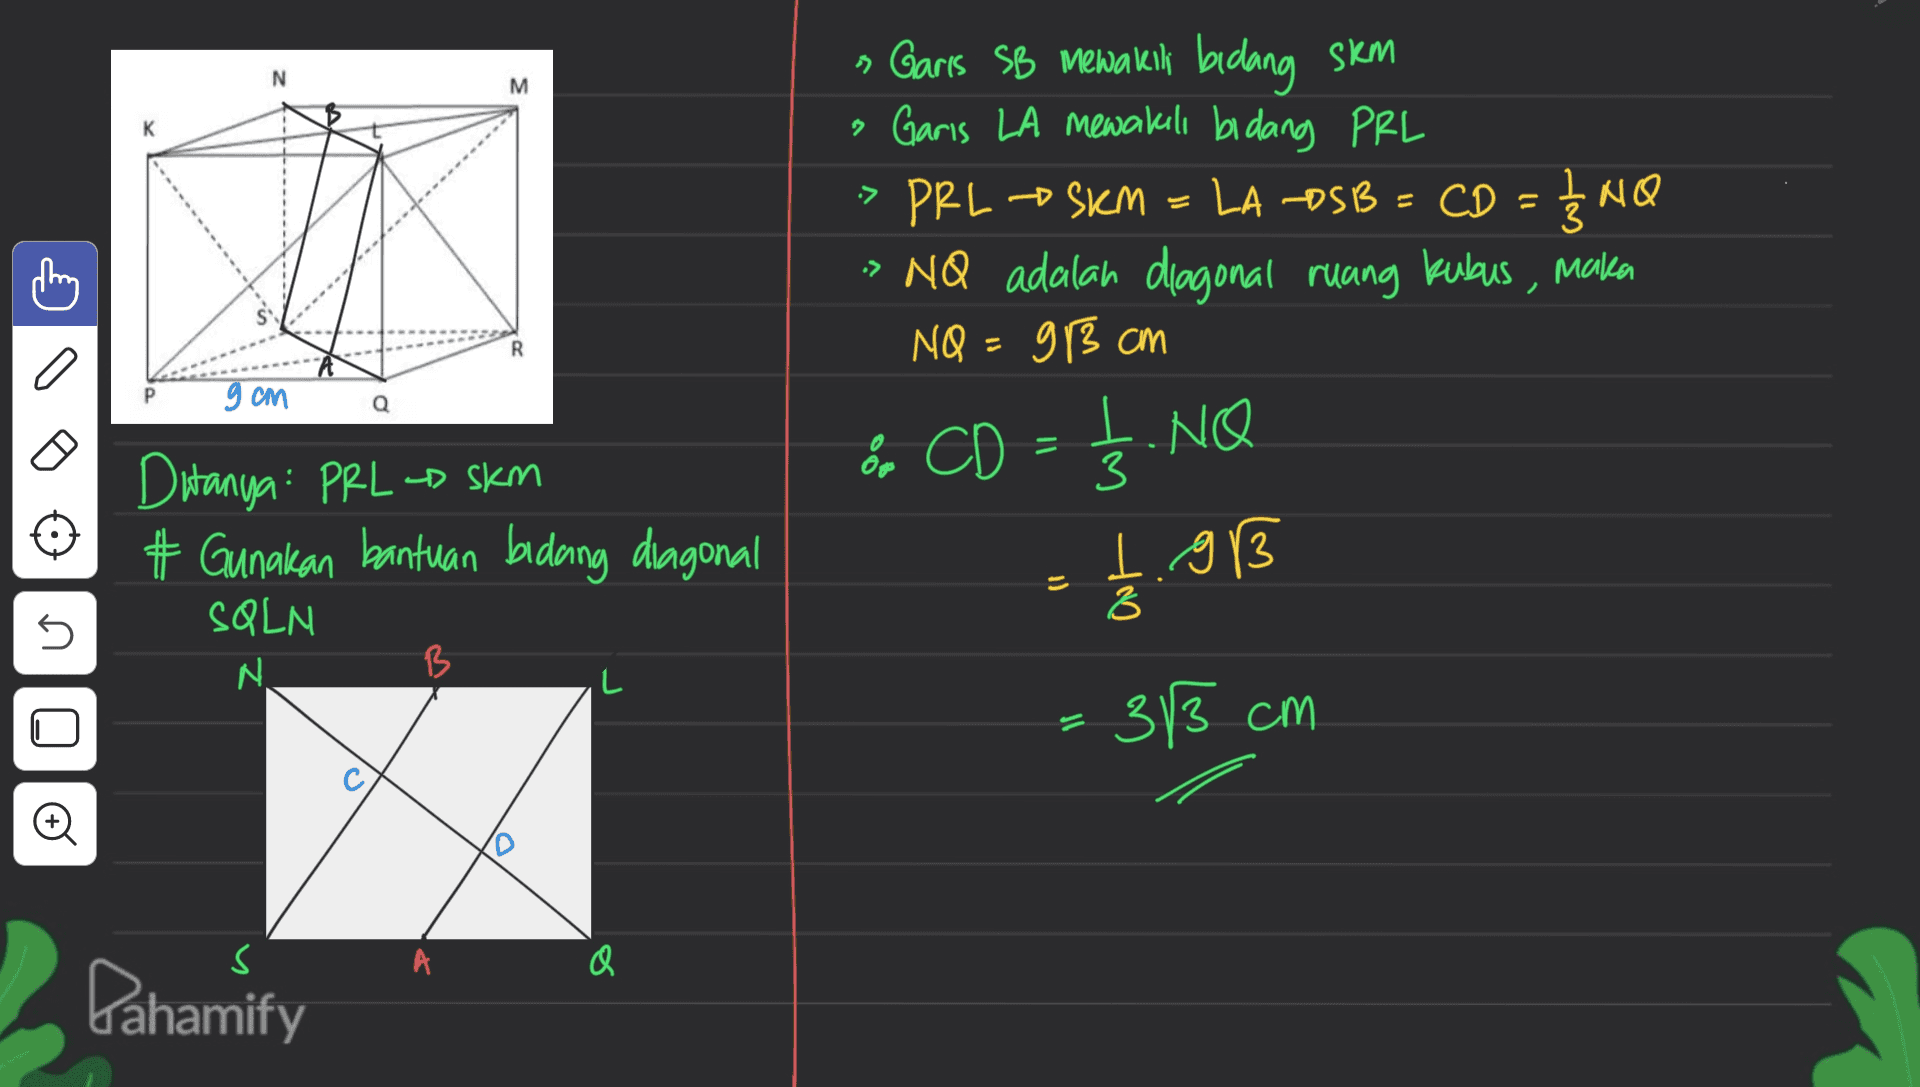 N
M
K
B
L
S
R
A
P
9 cm
Q
Ditanya: PRL → SKM
# Gunakan bantuan bidang diagonal
SQLN
N
B
L
C
D
S
A
Q
Pahamify
Garis SB mewakili bidang SKM
Garis LA mewakili bidang PRL
PRL → SKM = LA → SB = CD = 1/3 NQ
NQ adalah diagonal ruang kubus, maka
NQ = 9√3 cm
∴ CD = 1/3 . NQ
= 1/3 . 9√3
= 3√3 cm